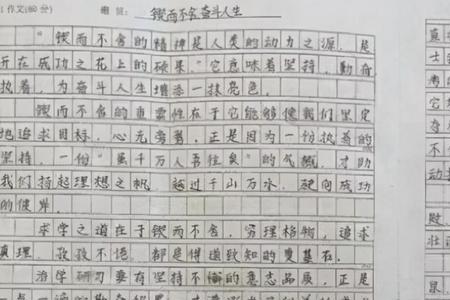 1 作文(60分)
题 目: 锲而不舍奋斗人生
"锲而不舍"的精神是人类的动力之源，是
开在成功之花上的硕果。"它意味着坚持，勤奋
执着，为奋斗人生增添一抹亮色。
锲而不舍的重要性在于它能够使我们坚定
地追求目标，心无旁骛。正是因为一份执着的
坚持，一份"虽千万人吾往矣"的气概，才助
我们扬起理想之帆，越过千山万水，驶向成功
的彼岸。
求学之道在于锲而不舍，穷理格物，追求
真理，孜孜不倦，都是得道致知的奠基石。
治学研习要有坚持不懈的意志品质，正是
真
士
考
它
夺
不
动
殿
壮